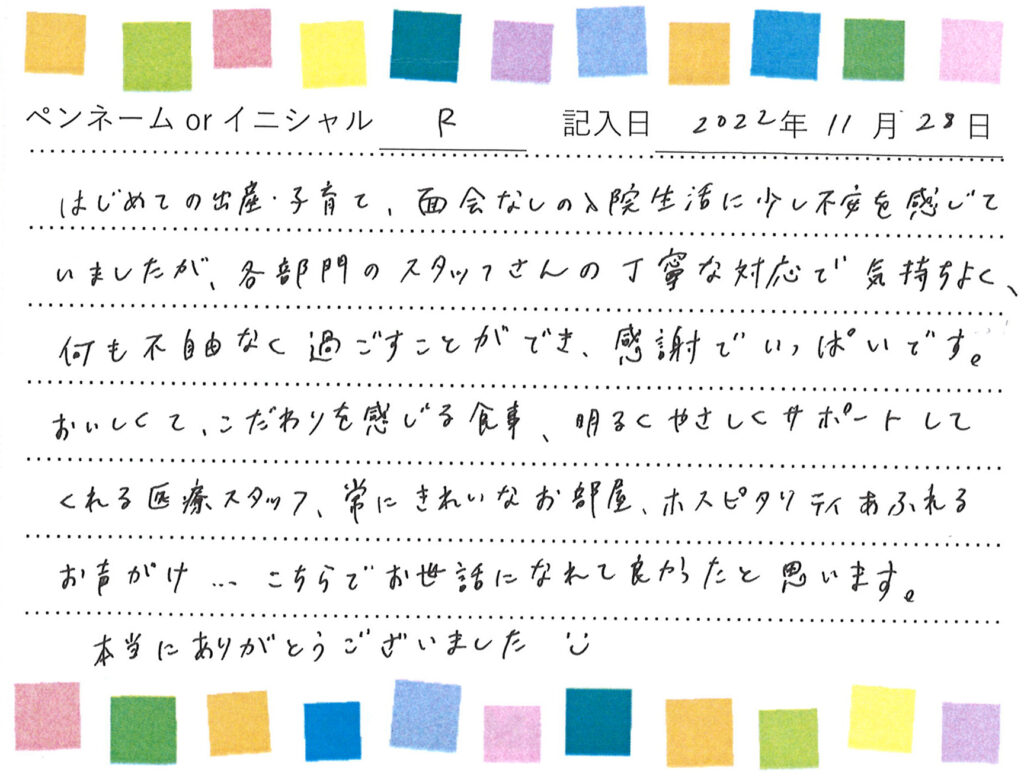 ペンネーム or イニシャル R 記入日 2022年 11月 28日
はじめての出産・子育て、面会なしの入院生活に少し不安を感じて
いましたが、各部門のスタッフさんの丁寧な対応で気持ちよく、
何も不自由なく過ごすことができ、感謝でいっぱいです。
おいしくて、こだわりを感じる食事、明るくやさしくサポートして
くれる医療スタッフ、常にきれいなお部屋、ホスピタリティあふれる
お声がけ… こちらでお世話になれて良かったと思います。
本当にありがとうございました